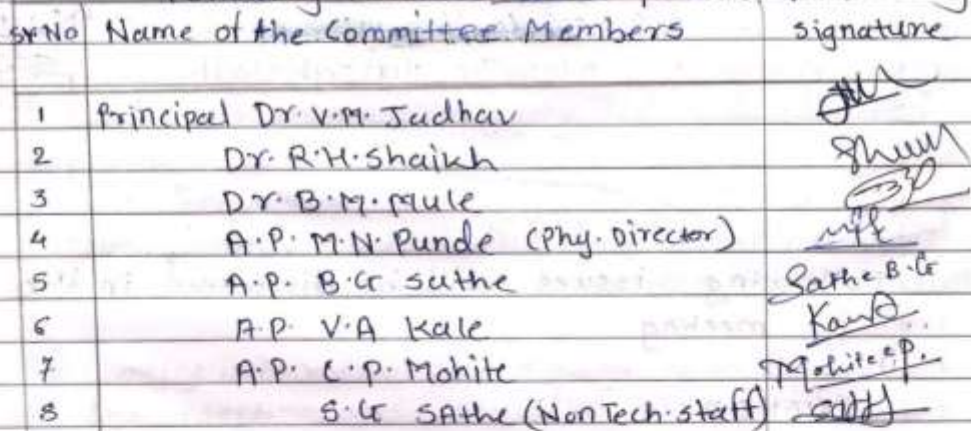 Sr No Name of the Committee Members signature
1 Principal Dr. V.M. Jadhav
2 Dr. R.H. Shaikh
3 Dr. B.M. Mule
4 A.P. M.N. Punde (Phy. Director)
5 A.P. B.G Sathe Sathe B.G
6 A.P. V.A Kale
7 A.P. C.P. Mohite Mohite C.P.
8 S.G SAthe (Non Tech. staff)